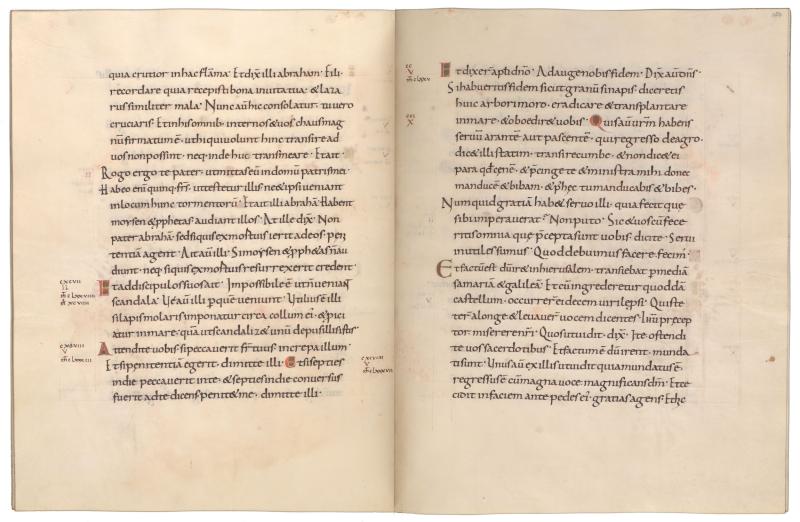 quia crucior in hac flāma· Et dix̄ illi abraham· Fili·
recordare quia recepisti bona in uita tua· & laza
rus similiter mala· Nunc aūt hic consolatur· tu uero
cruciaris· Et in his omnib; inter nos & uos chaus mag
nū firmatum ē· ut hi qui uolunt hinc transire ad
uos non possint· neq; inde huc transmeare· Et ait·
Rogo ergo te pater· ut mittas eū in domū patris mei·
Habeo enī quinq; fr̄s· ut testetur illis ne & ipsi ueniant
in locum hunc tormentorū· Et ait illi abrahā· Habent
moysen & pphetas audiant illos· At ille dix̄· Non
pater abrahā· sed si quis ex mortuis ierit ad eos· peni
tentiā agent· Ait aū illi· Si moysen & pph&as n̄ au
diunt· neq; si quis ex mortuis resurrexerit credent·
cxcvii
Et ad discipulos suos ait· Impossibile ē ut n̄ ueniant
scandala· Ue aū illi p quē ueniunt· Utilius ē illi
si lapis molaris imponatur circa collum ei; & proici
atur in mare· quā ut scandaliz& unū de pusillis istis·
Attendite uobis· si peccauerit fr̄ tuus· increpa illum·
Et si penitentiā egerit· dimitte illi· Et si septies
in die peccauerit in te· & septies in die conuersus
fuerit ad te dicens penit& me· dimitte illi·
cc
v
Et dixer̄ apl̄i dn̄o· Adauge nobis fidem· Dix̄ aū dn̄s·
Si habueritis fidem sicut granū sinapis· diceretis
huic arbori moro· eradicare & transplantare
in mare· & oboedir& uobis· Quis aū ur̄m habens
seruū arantē aut pascentē· qui regresso de agro·
dic& illi statim· transi recumbe· & non dic& ei
para qđ cenē· & p̄cinge te & ministra mihi donec
manducē & bibam· & p; hęc tu manducabis & bibes·
Numquid gratiā hab& seruo illi· quia fecit que
sibi imperauerat? Non puto· Sic & uos cū fece
ritis omnia quę p̄cepta sunt uobis· dicite· Serui
inutiles sumus· Quod debuimus facere· fecim;
Et factū est dū ir& in hierusalem· transiebat p mediā
samariā & galileā· Et cū ingrederetur quoddā
castellum· occurrer̄ ei decem uiri leprosi· Qui ste
ter̄ a longe & leuauer̄ uocem dicentes· Iħu precep
tor miserere nr̄i· Quos ut uidit· dix̄· Ite ostendi
te uos sacerdotibus· Et factum ē dū irent· munda
ti sunt· Unus aū ex illis ut uidit quia mundatus ē·
regressus ē cum magna uoce· magnificans dm̄· Et ce
cidit in faciem ante pedes ei; gratias agens· Et hic